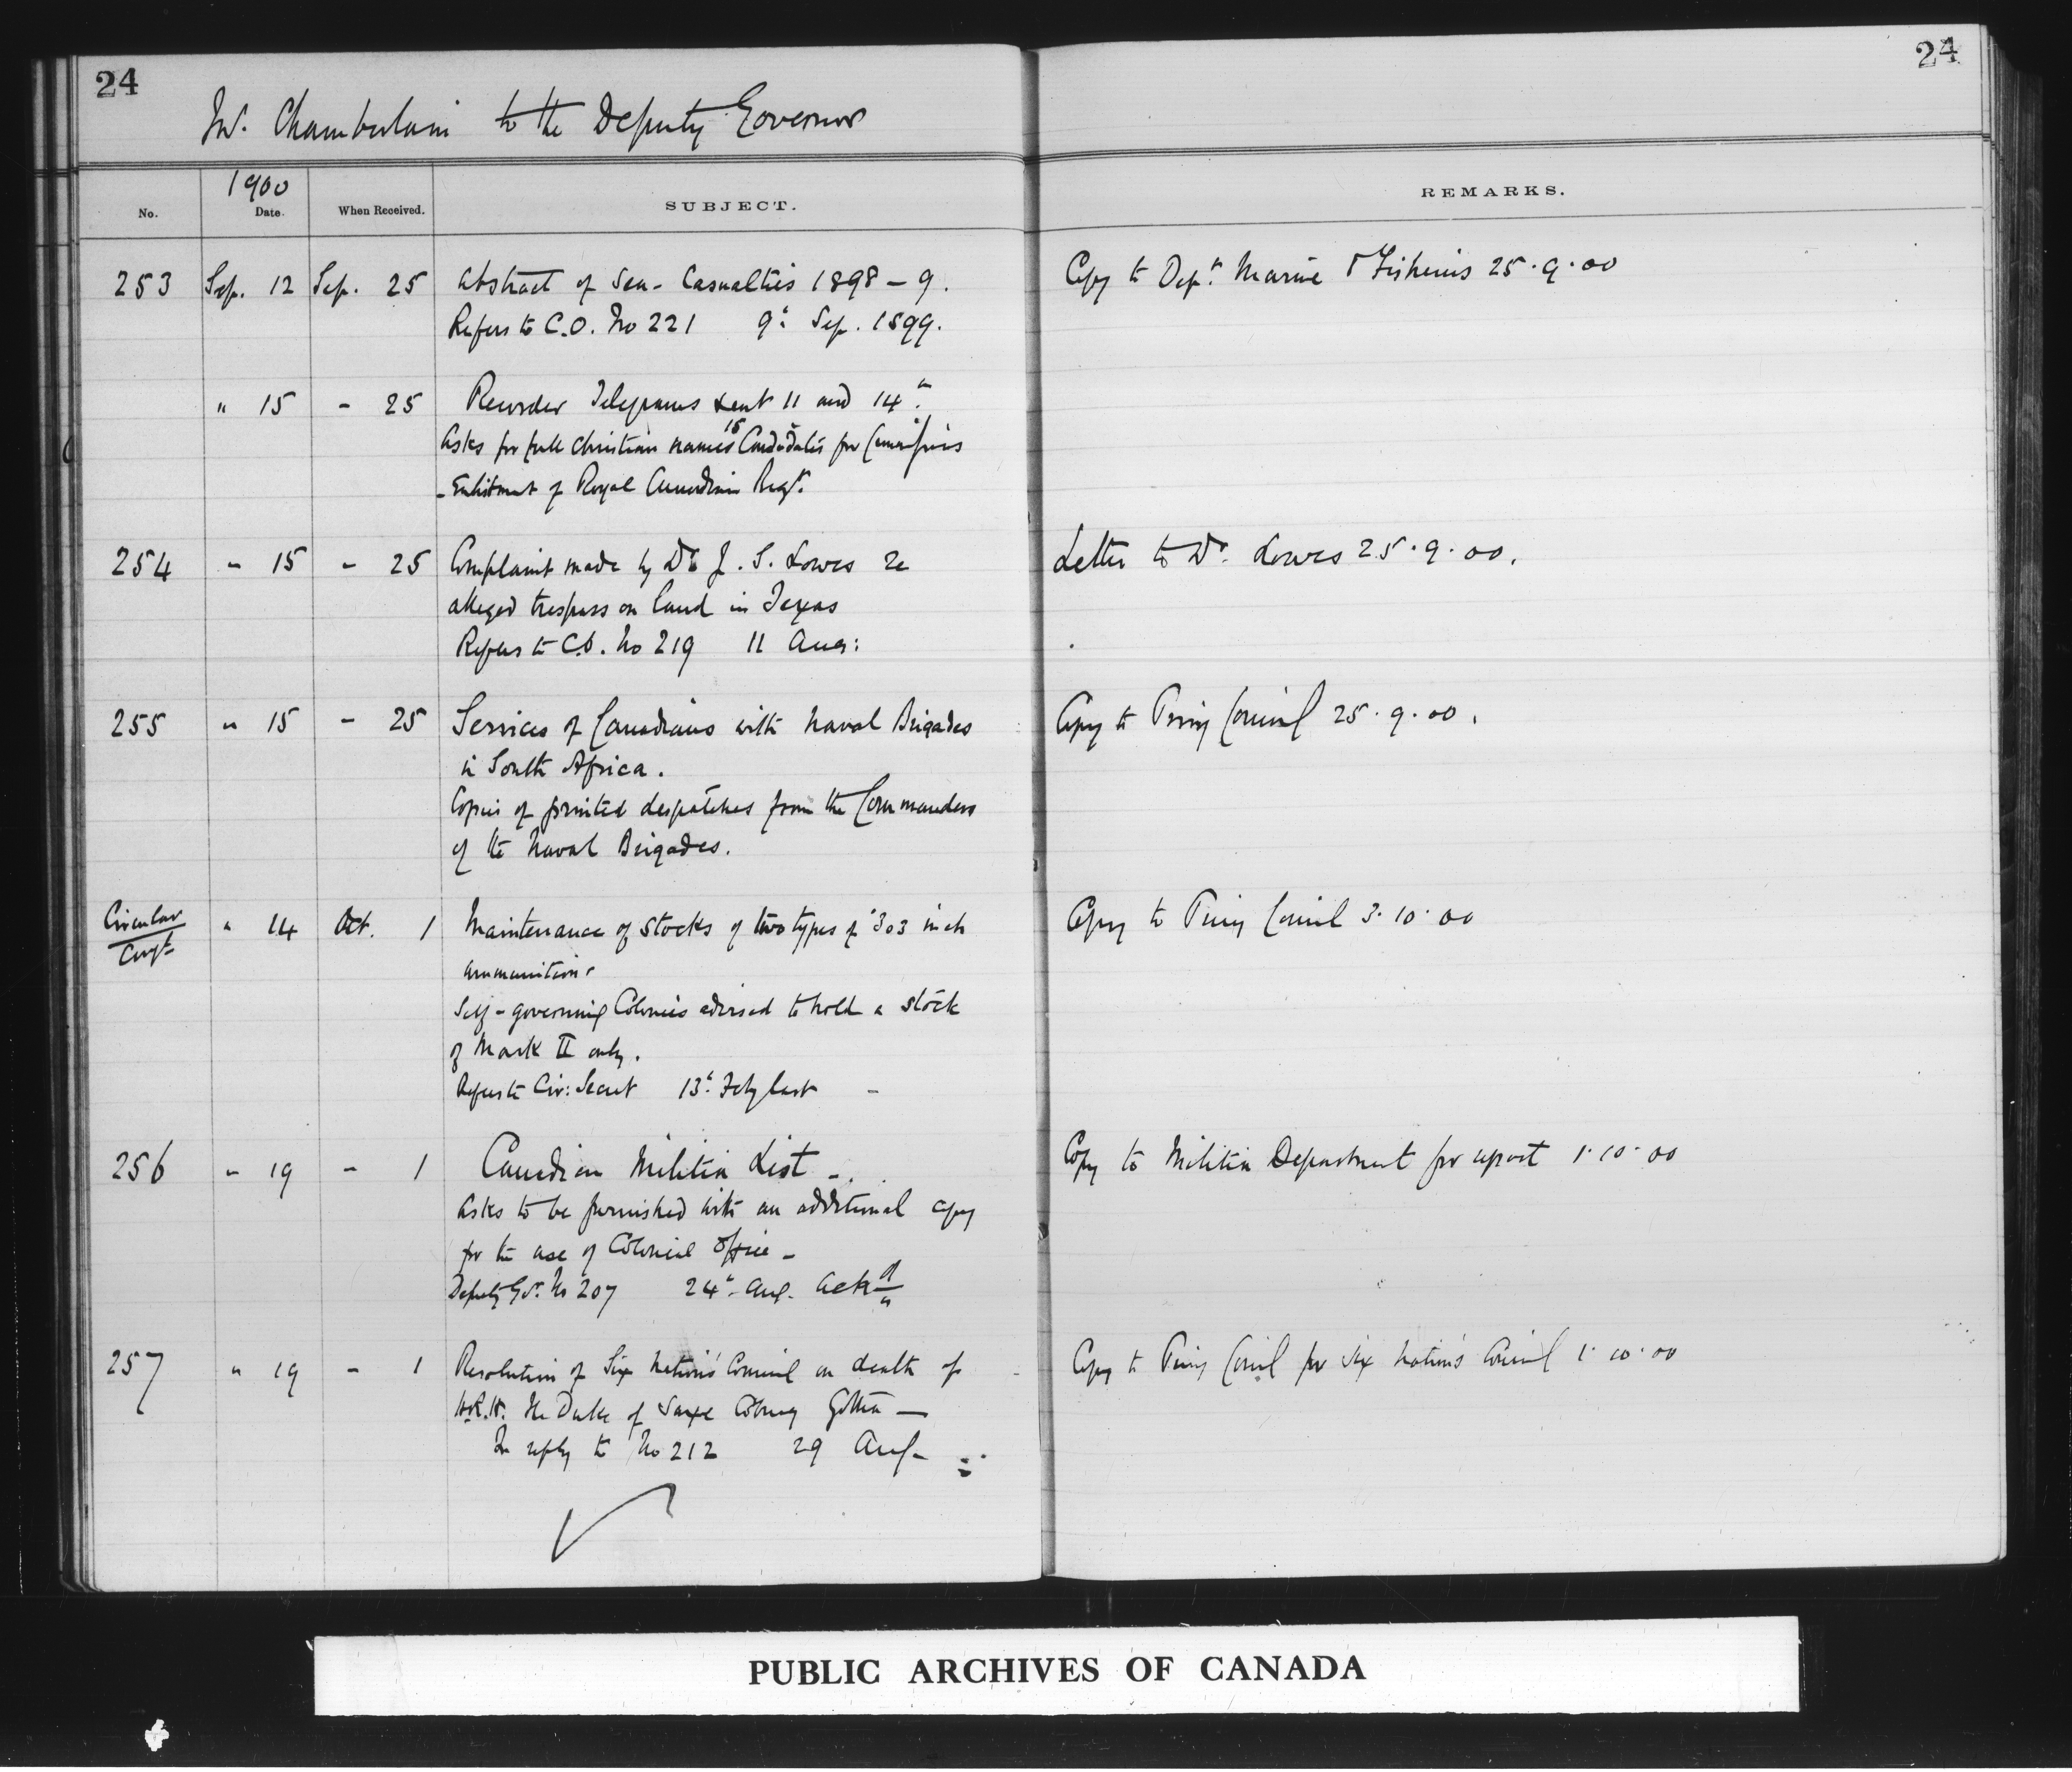 24
24
Mr. Chamberlain to the Deputy Governor
1900
No. Date. When Received. SUBJECT. REMARKS.
253 Sep. 12 Sep. 25 Abstract of Sea-Casualties 1898-9. Copy to Dept. Marine & Fisheries 25.9.00
Refers to C.O. No 221 9th Sep. 1899.
" 15 - 25 Recorder Telegrams sent 11 and 14th.
Asks for full Christian names 15 Candidates for Commissions
- Enlistment of Royal Canadian Regt.
254 " 15 - 25 Complaint made by Dr J. S. Lowes re Letter to Dr. Lowes 25.9.00.
alleged trespass on land in Texas
Refers to C.O. No 219 11 Aug:
255 " 15 - 25 Services of Canadians with Naval Brigades Copy to Privy Council 25.9.00.
in South Africa.
Copies of printed despatches from the Commanders
of the Naval Brigades.
Circular " 14 Oct. 1 Maintenance of Stocks of two types of .303 inch Copy to Privy Council 3.10.00
ammunition.
Self-governing Colonies advised to hold a stock
of Mark II only.
Refers to Cir: Secret 13th. Feby last -
256 " 19 - 1 Canadian Militia List - Copy to Militia Department for report 1.10.00
Asks to be furnished with an additional copy
for the use of Colonial Office -
Deputy Gov. No 207 24th. Aug. ackd
257 " 19 - 1 Resolution of Six Nations' Council on death of Copy to Privy Council for Six Nations Council 1.10.00
H.R.H. The Duke of Saxe Coburg Gotha -
In reply to No 212 29 Aug -
PUBLIC ARCHIVES OF CANADA